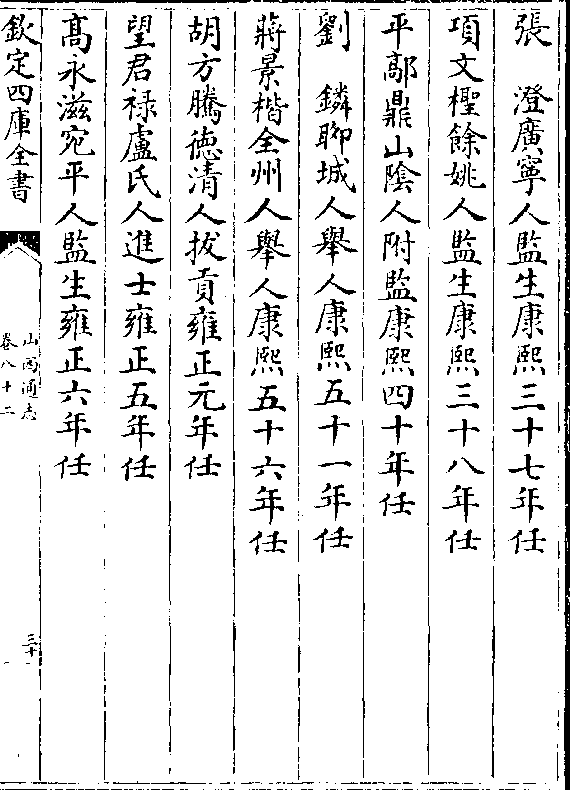 張　澄廣寧人監生康熙三十七年任
項文檉餘姚人監生康熙三十八年任
平鄗鼎山陰人附監康熙四十年任
劉　鏻聊城人舉人康熙五十一年任
蔣景楷全州人舉人康熙五十六年任
胡方騰德清人拔貢雍正元年任
望君祿盧氏人進士雍正五年任
高永滋宛平人監生雍正六年任
欽定四庫全書
山西通志
卷八十二
三十